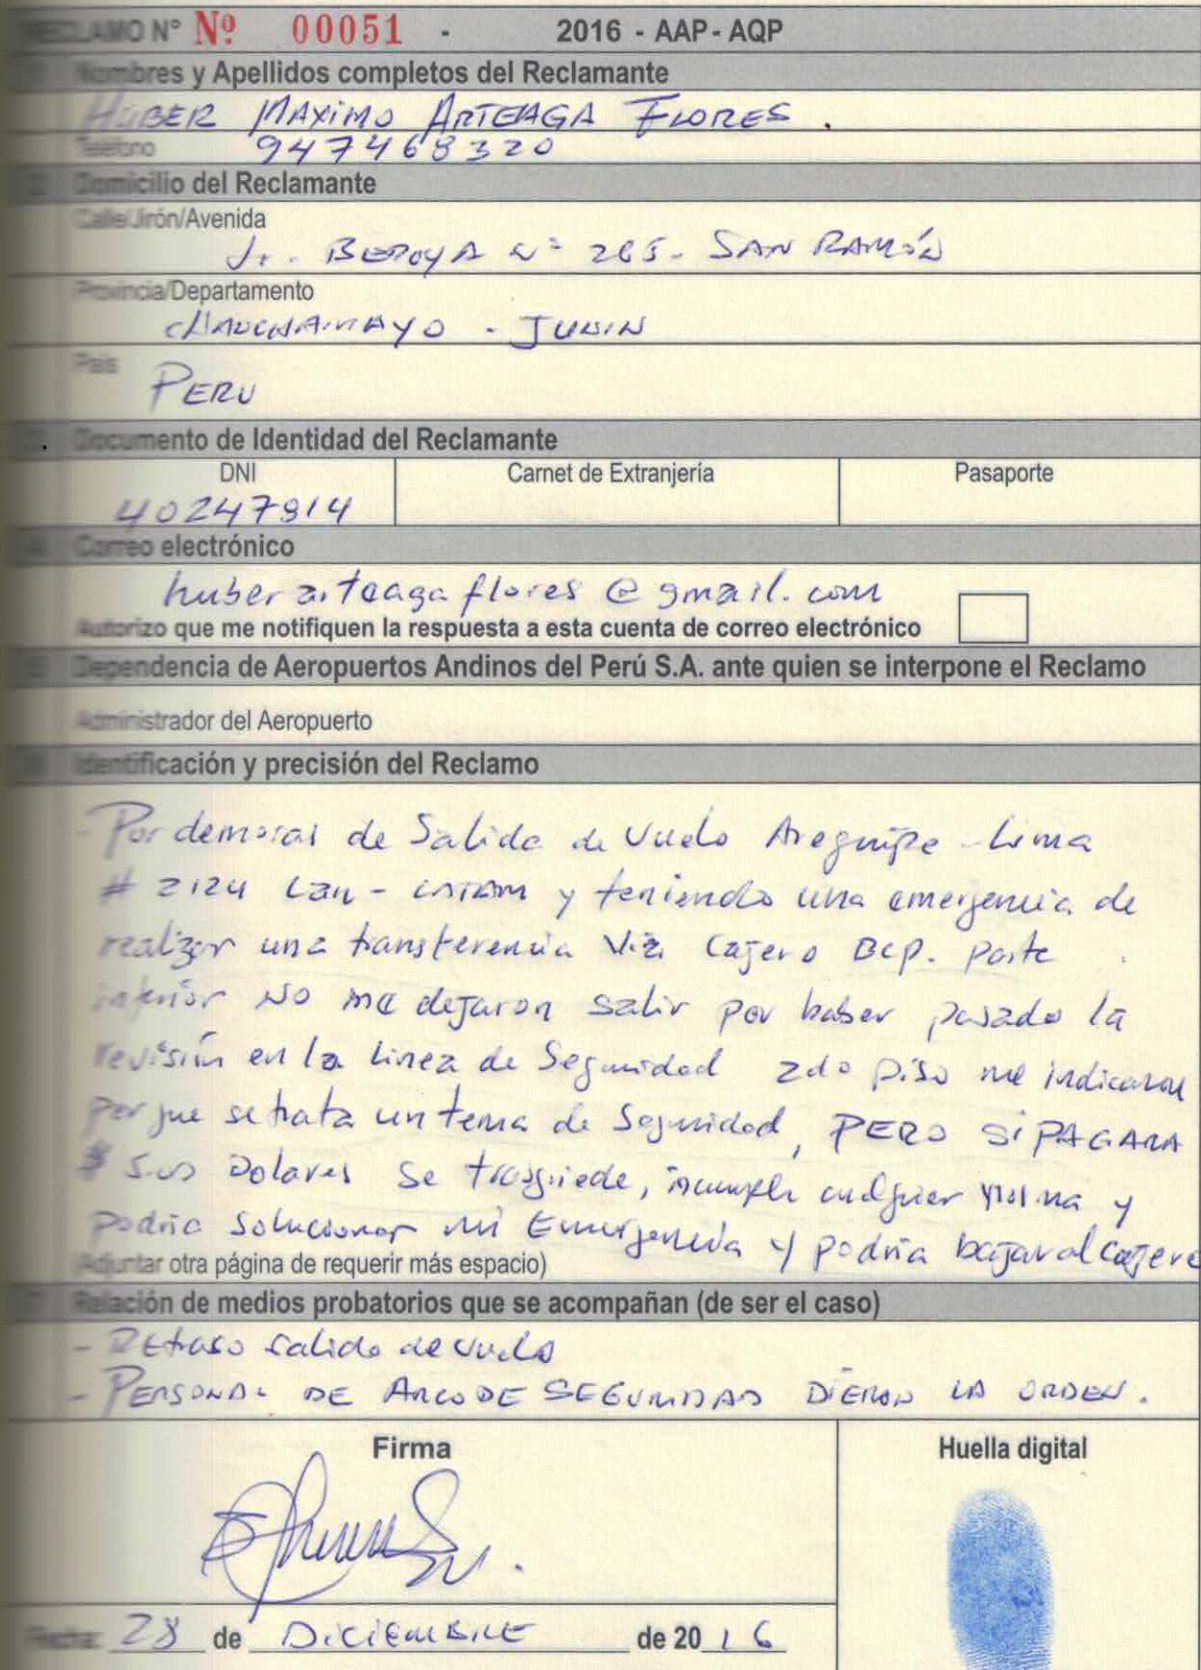 RECLAMO N° Nº 00051 - 2016 - AAP - AQP
Nombres y Apellidos completos del Reclamante
HUBER MAXIMO ARTEAGA FLORES.
Teléfono 947468320
Domicilio del Reclamante
Calle/Jirón/Avenida
Jr. BEDOYA N° 265- SAN RAMÓN
Provincia/Departamento
CHANCHAMAYO - JUNIN
País
PERU
Documento de Identidad del Reclamante
DNI Carnet de Extranjería Pasaporte
40247914
Correo electrónico
huberarteagaflores@gmail.com
Autorizo que me notifiquen la respuesta a esta cuenta de correo electrónico
Dependencia de Aeropuertos Andinos del Perú S.A. ante quien se interpone el Reclamo
Administrador del Aeropuerto
Identificación y precisión del Reclamo
- Por demoras de Salida de Vuelo Arequipa - Lima
# 2124 Lan - LATAM y teniendo una emergencia de
realizar una transferencia Via Cajero BCP. parte
inferior NO me dejaron salir por haber pasado la
revisión en la linea de Seguridad 2do piso me indicaron
porque se trata un tema de Seguridad, PERO SI PAGARA
$ 5.00 Dolares Se trasgriede, incumple cualquier norma y
podria solucionar mi Emergencia y podria bajar al cajero
(Adjuntar otra página de requerir más espacio)
Relación de medios probatorios que se acompañan (de ser el caso)
- Retraso salida de vuelo
- PERSONAL DE ARCO DE SEGURIDAD DIERON LA ORDEN.
Firma Huella digital
Fecha: 28 de DICIEMBRE de 20 16